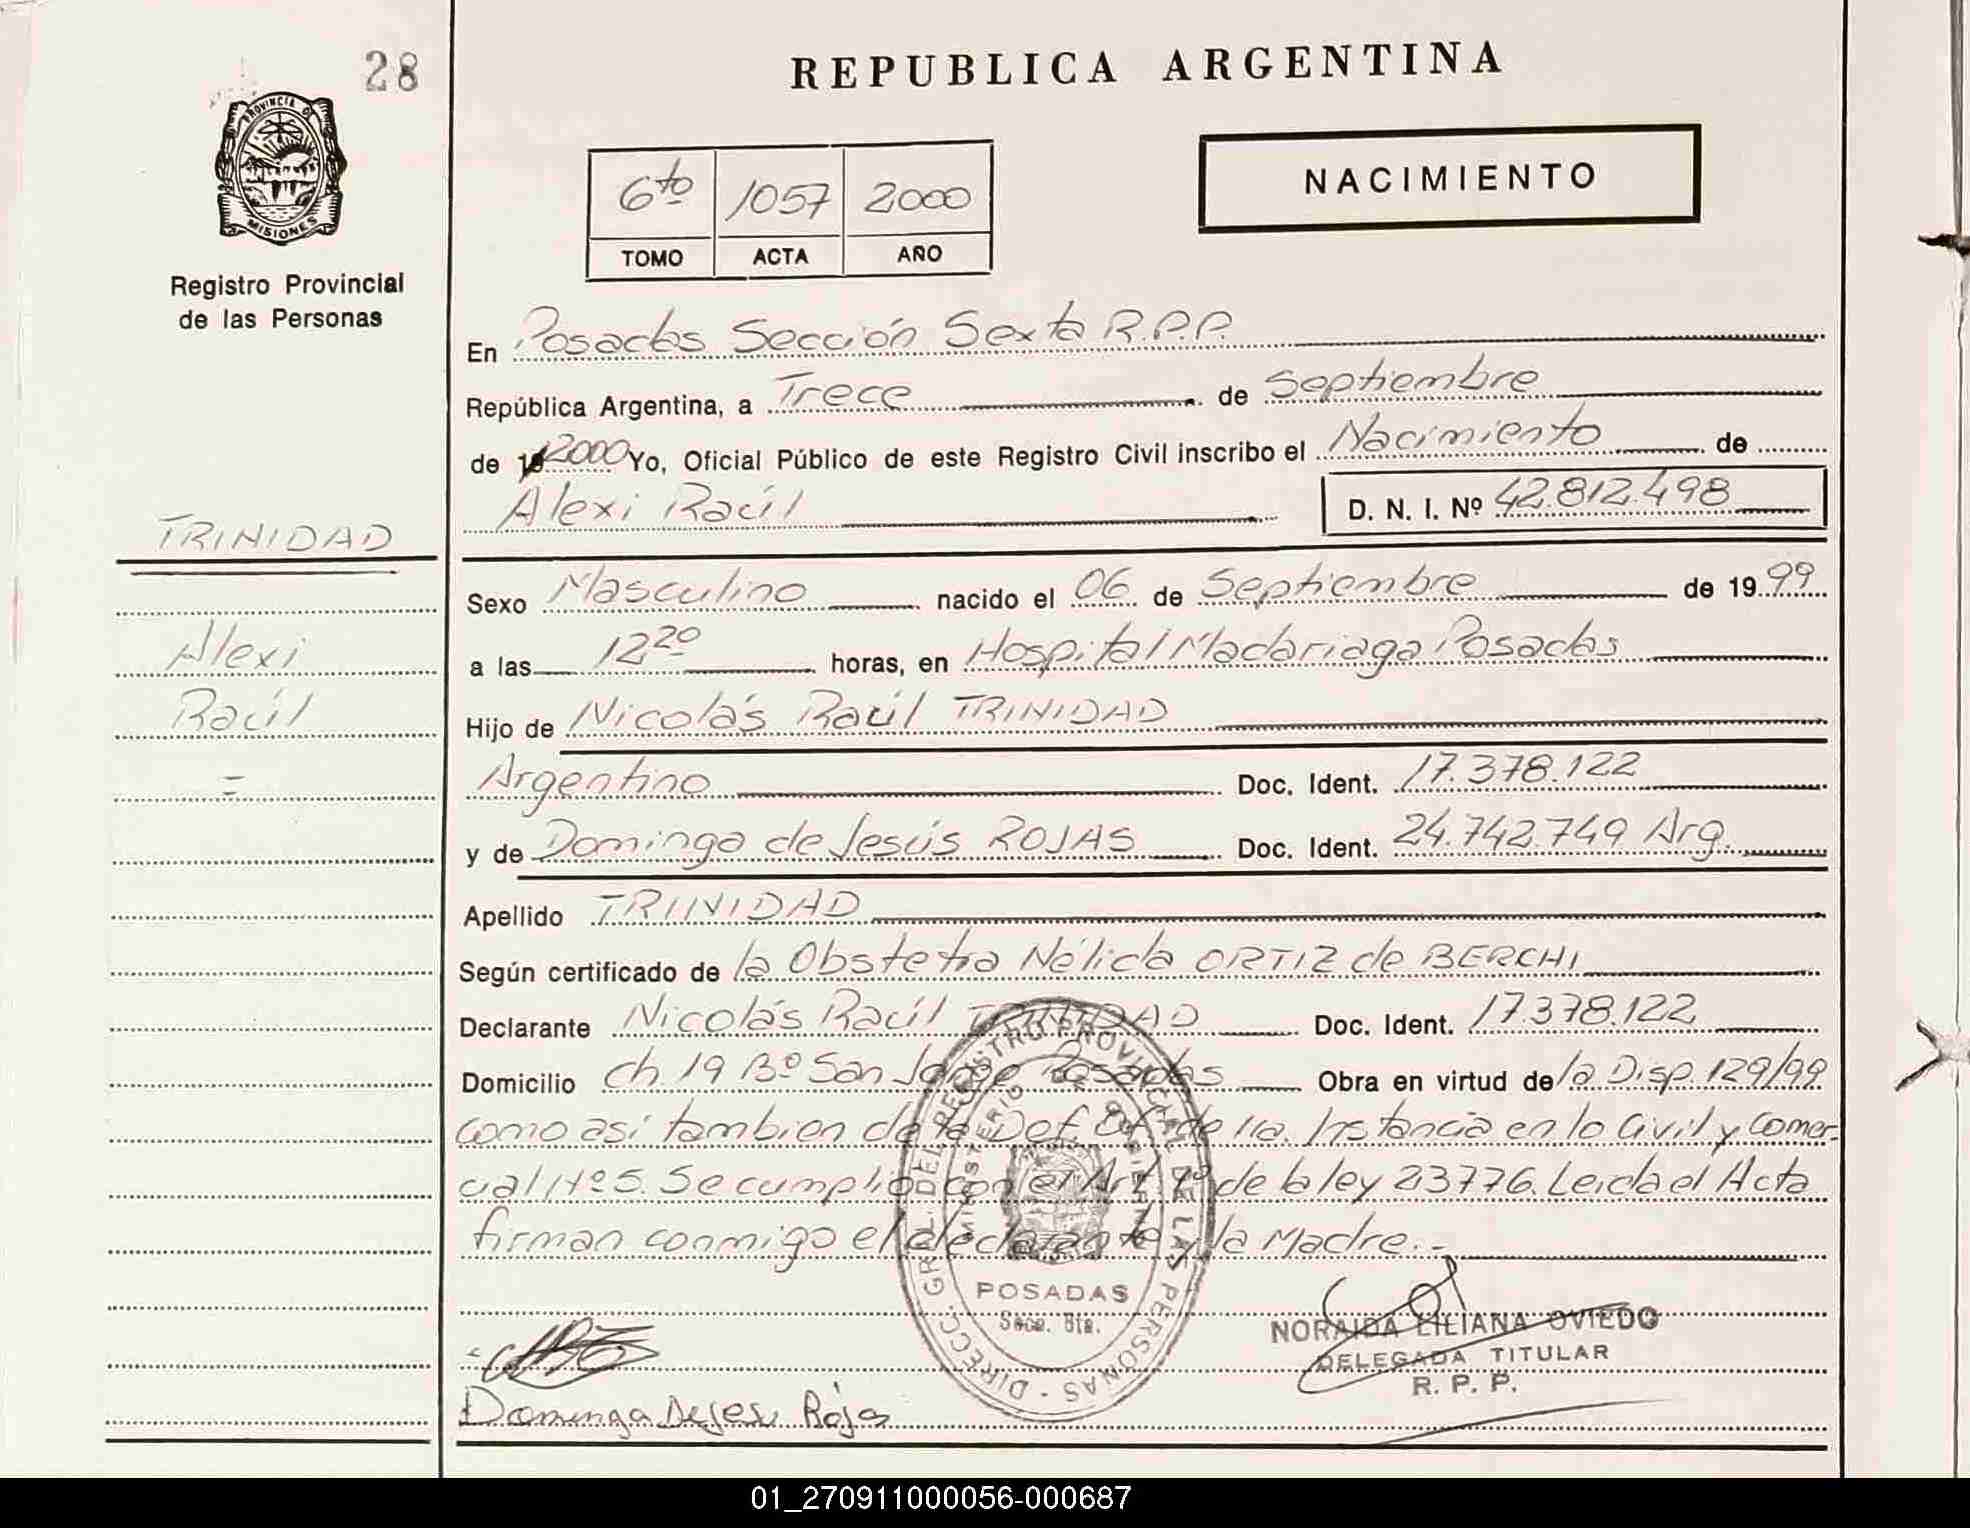 28
REPUBLICA ARGENTINA
PROVINCIA DE
MISIONES
Registro Provincial
de las Personas
6to 1057 2000
TOMO ACTA AÑO
NACIMIENTO
En Posadas Sección Sexta R.P.P.
República Argentina, a Trece de Septiembre
de 2000 Yo, Oficial Público de este Registro Civil inscribo el Nacimiento de
Alexi Raúl D. N. I. Nº 42.812.498
TRINIDAD
Alexi
Raúl
=
Sexo Masculino nacido el 06 de Septiembre de 1999
a las 12 20 horas, en Hospital Madariaga Posadas
Hijo de Nicolás Raúl TRINIDAD
Argentino Doc. Ident. 17.378.122
y de Dominga de Jesús ROJAS Doc. Ident. 24.742.749 Arg.
Apellido TRINIDAD
Según certificado de la Obstetra Nélida ORTIZ de BERCHI
Declarante Nicolás Raúl TRINIDAD Doc. Ident. 17.378.122
Domicilio Ch. 19 Bº San Jorge Posadas Obra en virtud de la Disp. 129/99
como asi tambien de la Def. Of. de 1ra. Instancia en lo Civil y Comer-
cial Nº 5. Se cumplió con el Art. de la ley 23776. Leida el Acta
firman conmigo el declarante y la Madre.-
DIRECC. GRAL. DEL REGISTRO PROVINCIAL DE LAS PERSONAS
MINISTERIO DE GOBIERNO
POSADAS
Secc. 6ta.
NORAIDA LILIANA OVIEDO
DELEGADA TITULAR
R. P. P.
Dominga Dejesu Rojas
01_270911000056-000687